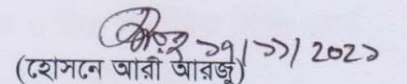 ২১/১১/২০২১
(হোসনে আরা আরজু)